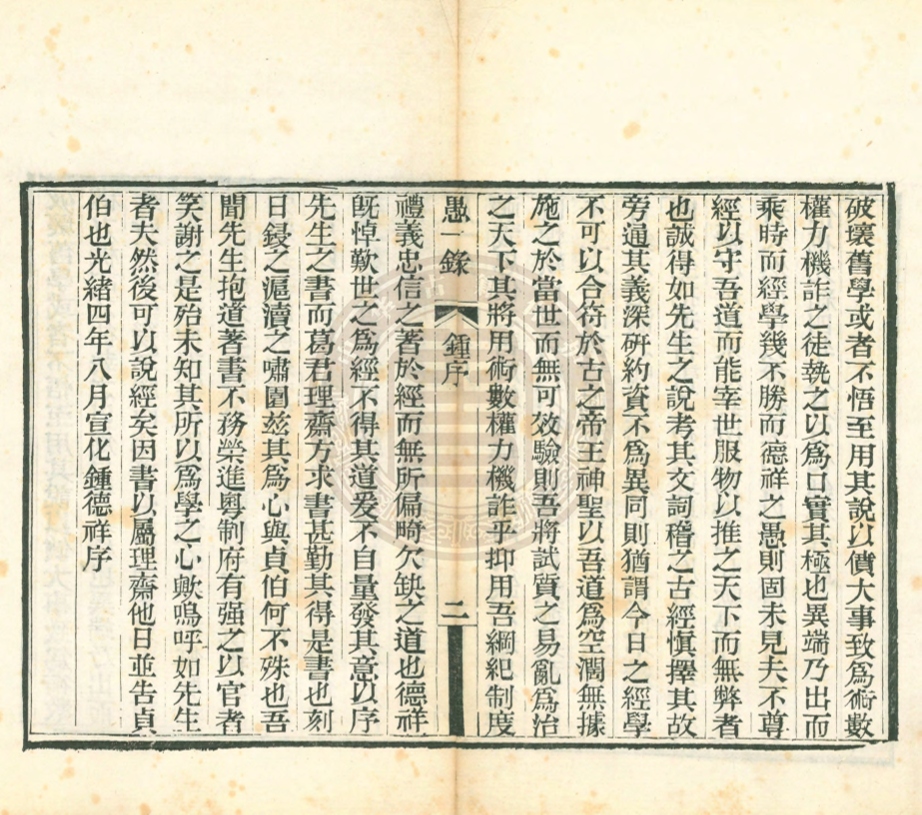 破壞舊學或者不悟至用其說以僨大事致爲術數
權力機詐之徒執之以爲口實其極也異端乃出而
乘時而經學幾不勝而德祥之愚則固未見夫不尊
經以守吾道而能宰世服物以推之天下而無弊者
也誠得如先生之說考其文詞稽之古經愼擇其故
旁通其義深硏約資不爲異同則猶謂今日之經學
不可以合符於古之帝王神聖以吾道爲空濶無據
施之於當世而無可效驗則吾將試質之易亂爲治
之天下其將用術數權力機詐乎抑用吾綱紀制度
愚一錄
鍾序
二
禮義忠信之著於經而無所偏畸欠缺之道也德祥
旣悼歎世之爲經不得其道爰不自量發其意以序
先生之書而葛君理齋方求書甚勤其得是書也刻
日鋟之滬瀆之嘯園兹其爲心與貞伯何不殊也吾
聞先生抱道著書不務榮進粤制府有强之以官者
笑謝之是殆未知其所以爲學之心歟嗚呼如先生
者夫然後可以說經矣因書以屬理齋他日並告貞
伯也光緒四年八月宣化鍾德祥序